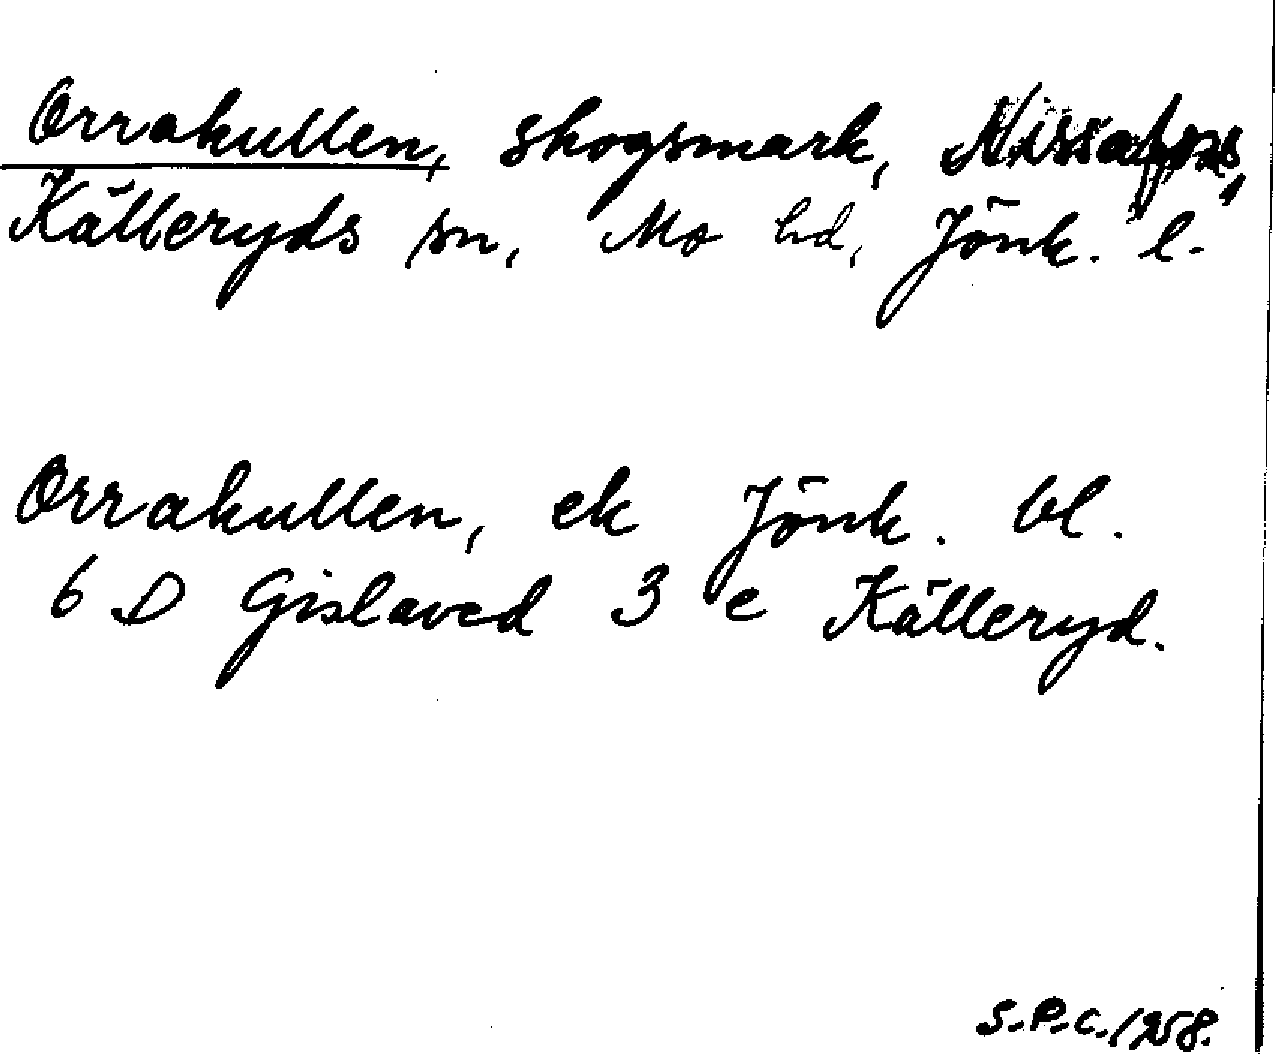 Orrakullen, skogsmark, Nissafors,
Källeryds sn, Mo hd, Jönk. l.
Orrakullen, ek Jönk. bl.
6 D Gislaved 3 e Källeryd.
S.P.C. 1958.